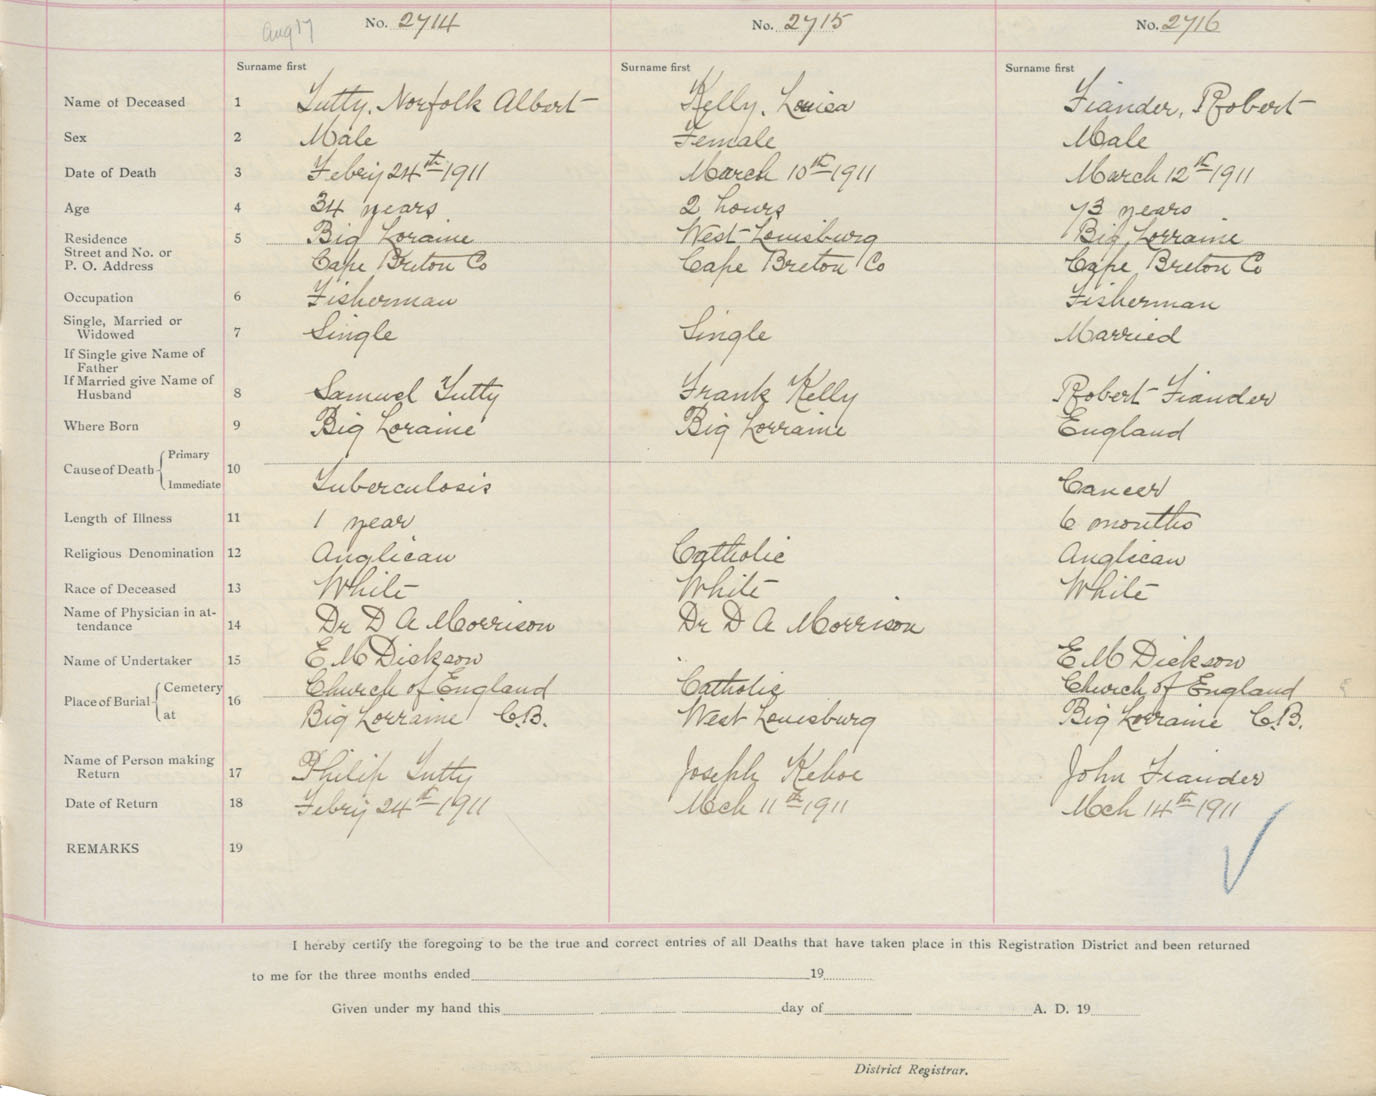 Aug 17
No. 2714 No. 2715 No. 2716
Surname first Surname first Surname first
Name of Deceased 1 Tutty, Norfolk Albert Kelly, Louisa Fiander, Robert
Sex 2 Male Female Male
Date of Death 3 Febry 24th 1911 March 10th 1911 March 12th 1911
Age 4 34 years 2 hours 73 years
Residence 5 Big Loraine West Louisburg Big Lorraine
Street and No. or
P. O. Address Cape Breton Co Cape Breton Co Cape Breton Co
Occupation 6 Fisherman Fisherman
Single, Married or
Widowed 7 Single Single Married
If Single give Name of
Father
If Married give Name of
Husband 8 Samuel Tutty Frank Kelly Robert Fiander
Where Born 9 Big Loraine Big Lorraine England
Cause of Death Primary
10
Immediate Tuberculosis Cancer
Length of Illness 11 1 year 6 months
Religious Denomination 12 Anglican Catholic Anglican
Race of Deceased 13 White White White
Name of Physician in at-
tendance 14 Dr D A Morrison Dr D A Morrison
Name of Undertaker 15 E M Dickson E M Dickson
Place of Burial Cemetery 16 Church of England Catholic Church of England
at Big Lorraine C.B. West Louisburg Big Lorraine C.B.
Name of Person making
Return 17 Philip Tutty Joseph Kehoe John Fiander
Date of Return 18 Febry 24th 1911 Mch 11th 1911 Mch 14th 1911
REMARKS 19
I hereby certify the foregoing to be the true and correct entries of all Deaths that have taken place in this Registration District and been returned
to me for the three months ended 19
Given under my hand this day of A. D. 19
District Registrar.